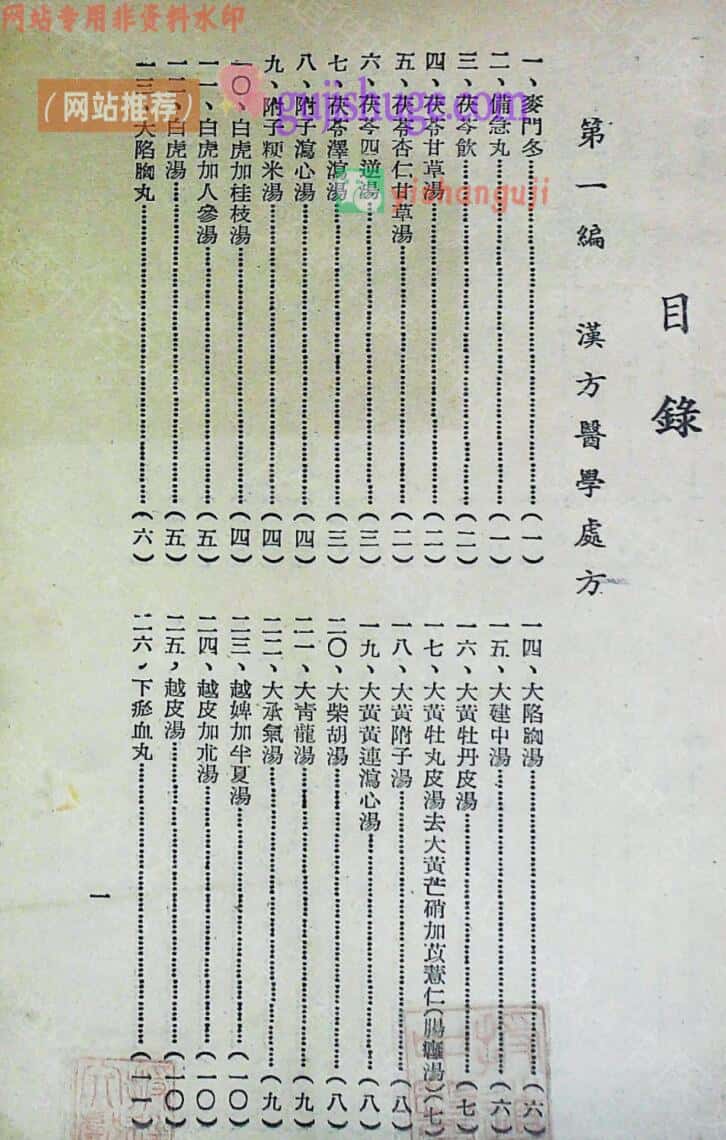 网站专用非资料水印
（网站推荐）
gujishuge.com
yishanguji
目錄
第一編　漢方醫學處方
一、麥門冬……（一）
二、備急丸……（一）
三、茯苓飲……（二）
四、茯苓甘草湯……（二）
五、茯苓杏仁甘草湯……（二）
六、茯苓四逆湯……（三）
七、茯苓澤瀉湯……（三）
八、附子瀉心湯……（四）
九、附子粳米湯……（四）
一〇、白虎加桂枝湯……（四）
一一、白虎加人參湯……（五）
一二、白虎湯……（五）
一三、大陷胸丸……（六）
一四、大陷胸湯……（六）
一五、大建中湯……（六）
一六、大黃牡丹皮湯……（七）
一七、大黃牡丸皮湯去大黃芒硝加苡薏仁（腸癰湯）（七）
一八、大黃附子湯……（八）
一九、大黃黃連瀉心湯……（八）
二〇、大柴胡湯……（八）
二一、大靑龍湯……（九）
二二、大承氣湯……（九）
二三、越婢加半夏湯……（一〇）
二四、越皮加朮湯……（一〇）
二五，越皮湯……（一〇）
二六，下瘀血丸……（一一）
一